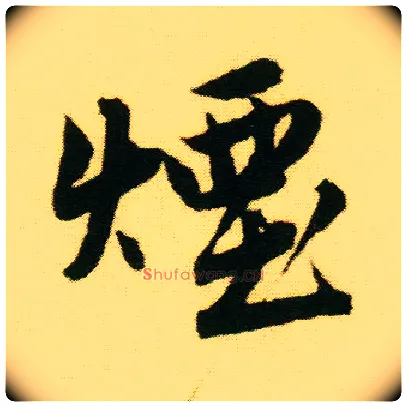 煙
Shufawang.cn